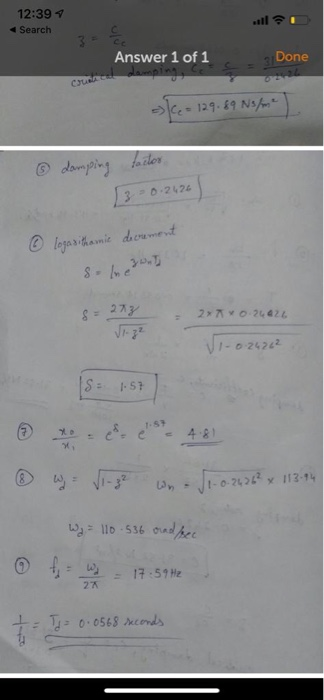 12:39
◀ Search
Answer 1 of 1
Done
ʒ = c / c_c
critical damping, C_c = c / ʒ = 31 / 0.2426
⇒ C_c = 129.89 Ns/m²
⑤ damping factor
ʒ = 0.2426
⑥ logarithamic decrement
δ = ln e^{ʒ ω_n T_d}
δ = 2πʒ / √(1-ʒ²) = 2×π×0.2426 / √(1-0.2426²)
δ = 1.57
⑦ x₀ / x₁ = e^δ = e^{1.57} = 4.81
⑧ ω_d = √(1-ʒ²) ω_n = √(1-0.2426²) × 113.94
ω_d = 110.536 rad/sec
⑨ f_d = ω_d / 2π = 17.59 Hz
1 / f_d = T_d = 0.0568 seconds